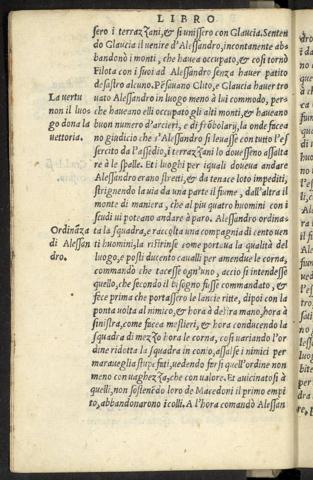 LIBRO
sero i terrazzani, & si unissero con Glaucia. Senten
do Glaucia il uenire d'Alessandro, incontanente ab-
bandonò i monti, che hauea occupato, & così tornò
Filota con i suoi ad Alessandro senza hauer patito
desastro alcuno. Pẽsauano Clito, e Glaucia hauer tro
La uertu
uato Alessandro in luogo meno à lui commodo, per-
non il luo-
che haueano elli occupato gli alti monti, & haueano
go dona la
buon numero d'arcieri, e di frõbolarij, la onde facea
uettoria.
no giudicio che s'Alessandro si leuasse con tutto l'es
sercito da l'assedio, i terrazzani lo douessono assalta
re à le spalle. Et i luoghi per iquali doueua andare
Alessandro erano stretti, & da tenace loto impediti,
strignendo la uia da una parte il fume, dall'altra il
monte di maniera, che al piu quatro huomini con i
scudi ui poteano andare à paro. Alessandro ordina-
Ordināza
ta la squadra, e raccolta una compagnia di cento uen
di Alessan
ti huomini, la rifirinse come portua la qualità del
dro.
luogo, e posti ducento caualli per amendue le corna,
commandò che tacesse ogn'uno, accio si intendesse
quello, che secondo il bisogno fusse commandato, &
fece prima che portassero le lancie ritte, dipoi con la
ponta uolta al nimico, & hora à destra mano, hora à
sinistra, come facea mestieri, & hora conducendo la
squadra di mezzo hora le corna, cosi uariando l'or
dine ridotta la squadra in conio, assalse i nimici per
marauegliastupefati, uedendo farsi quell'ordine non
meno con uaghezza, che con ualore. Et auicinatosi à
quelli, non sostenẽdo loro de Macedoni il primo empi
to, abbandonarono i colli. A l'hora comandò Alessan